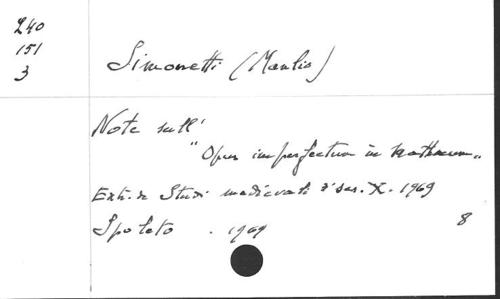 240
151
3
Simonetti (Manlio)
Note sull'
"Opus imperfectum in Matthaeum"
Extr. de Studi medievali 3° ser. X. 1969
Spoleto . 1969
8